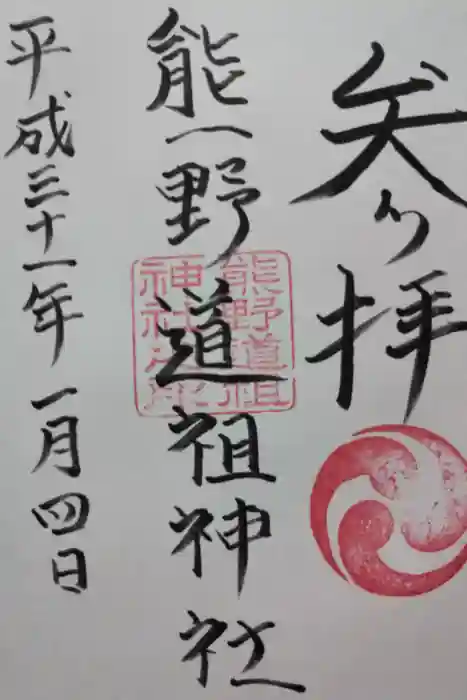 参拝
熊野道祖神社
平成三十一年一月四日
熊野道祖
神社之印